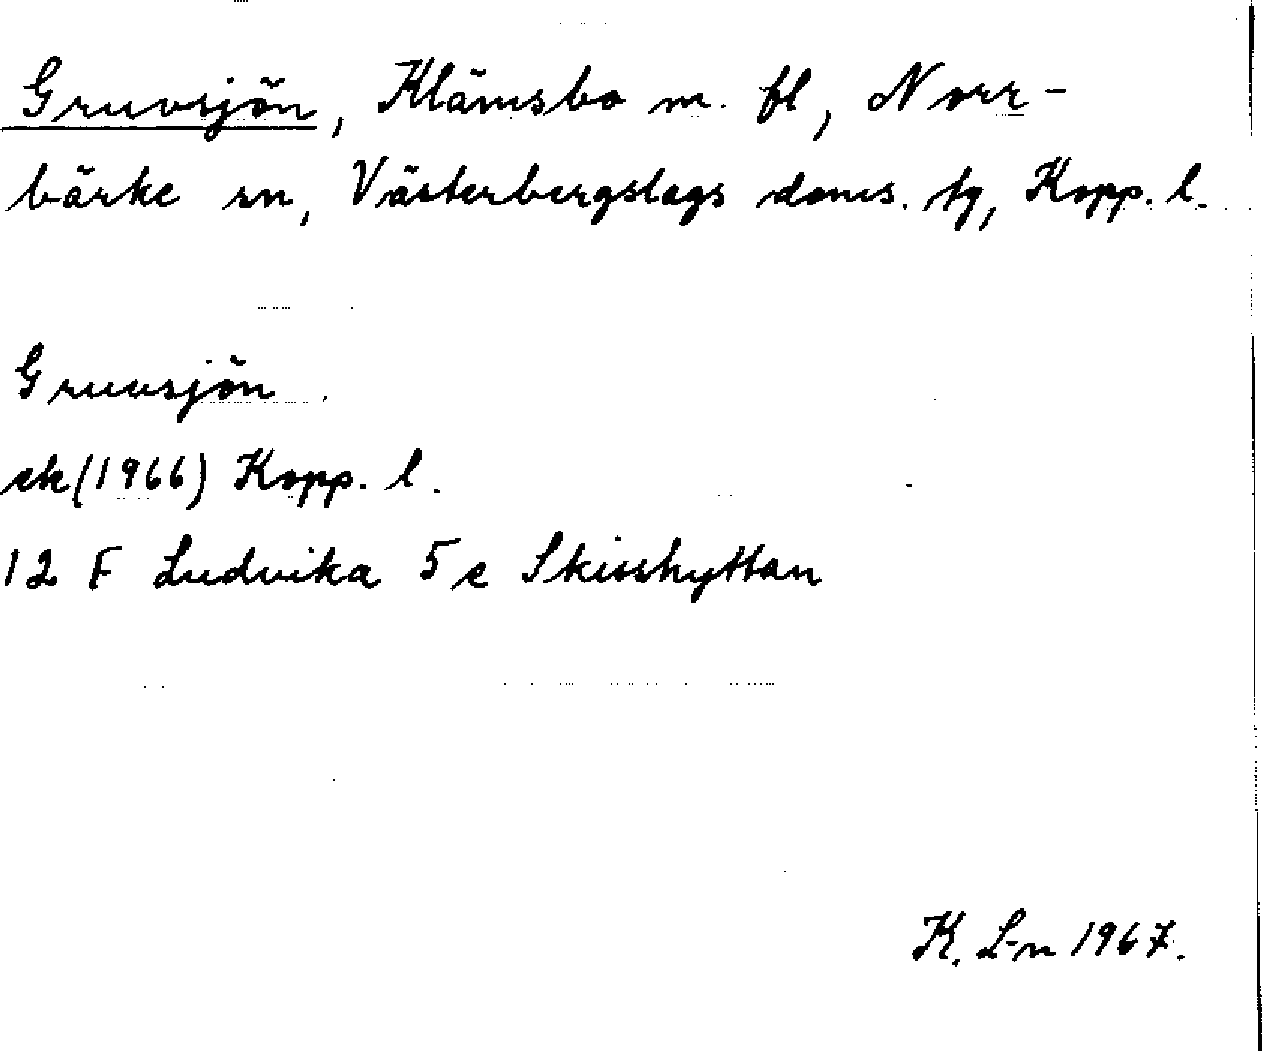 Gruvsjön, Klämsbo m. fl, Norr-
bärke sn, Västerbergslags doms. tg, Kopp. l.
Gruvsjön.
ek (1966) Kopp. l.
12 F Ludvika 5 e Skisshyttan
K. L-n 1967.